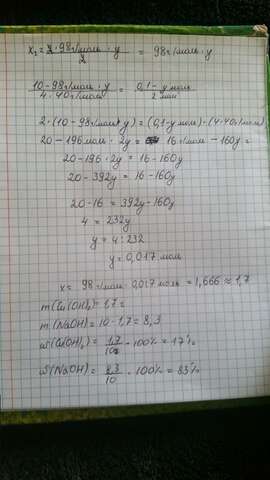 x₁ = 2·98г/моль·y / 2 = 98г/моль·y
10-98г/моль·y / 4·40г/моль = 0,1-y моль / 2 моль
2·(10-98г/моль·y) = (0,1-y моль)·(4·40г/моль)
20-196моль·2y = 16г/моль-160y =
20-196·2y = 16-160y
20-392y = 16-160y
20-16 = 392y-160y
4 = 232y
y = 4:232
y = 0,017 моль
x = 98г/моль·0,017моль = 1,666 ≈ 1,7
m(Cu(OH)₂) = 1,7г
m(NaOH) = 10-1,7 = 8,3
ω(Cu(OH)₂) = 1,7/10 · 100% = 17%
ω(NaOH) = 8,3/10 · 100% = 83%